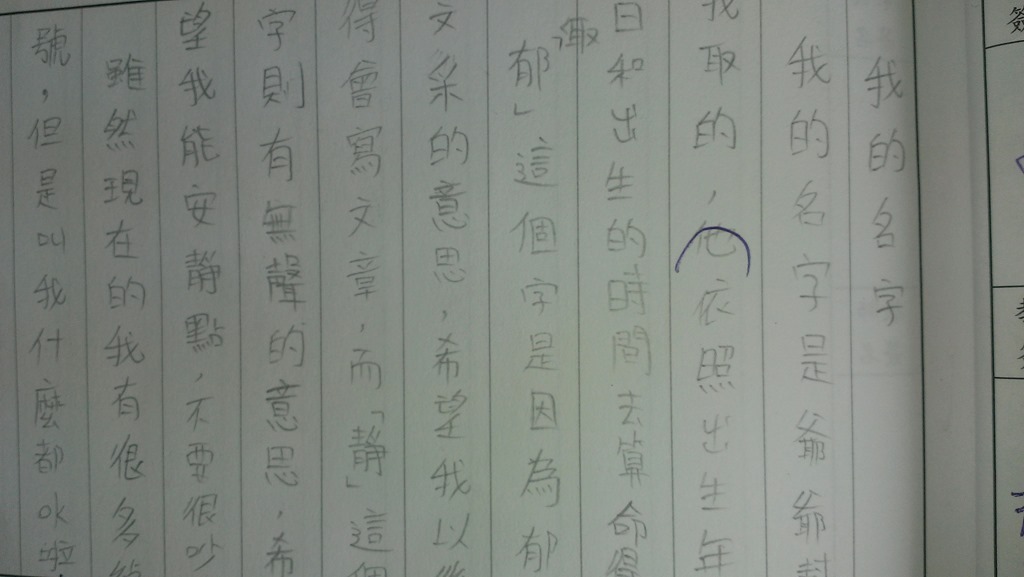 我的名字
我的名字是爺爺
我取的，他依照出生年
日和出生的時間去算命
郁」這個字是因為郁
文采的意思，希望我以
得會寫文章，而「靜」這個
字則有無聲的意思，希
望我能安靜點，不要很吵
雖然現在的我有很多
號，但是叫我什麼都ok啦